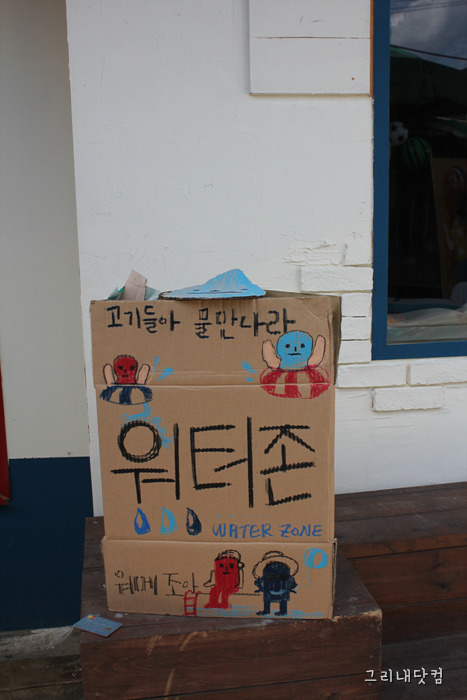 고기들아 물만나라
워터존
WATER ZONE
워께 조아
그리내닷컴